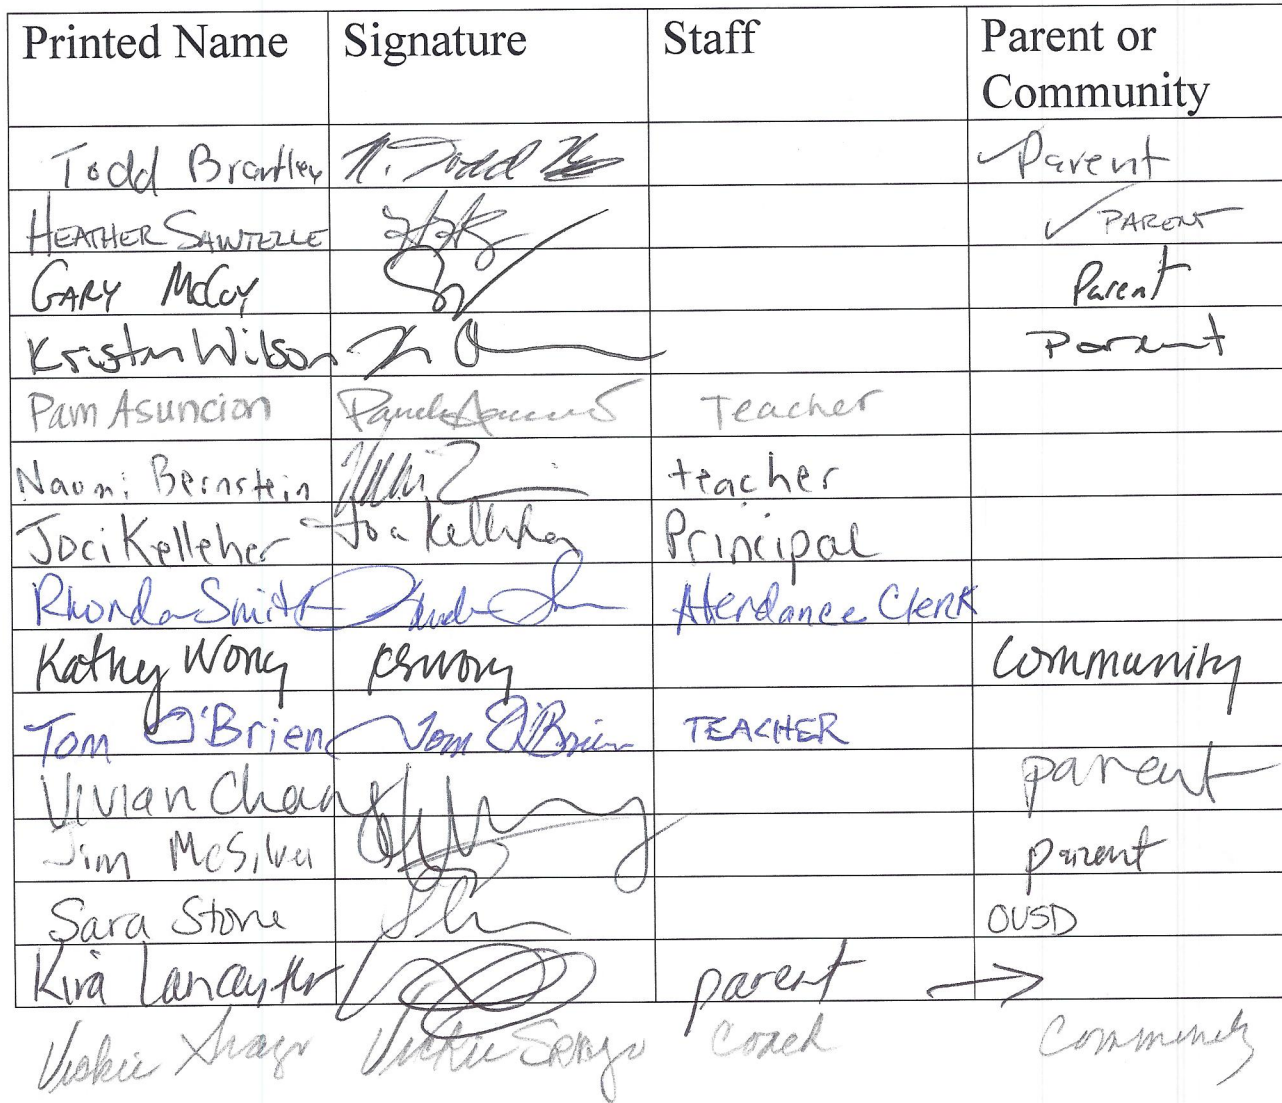 Printed Name Signature Staff Parent or Community
Todd Brantley N. Todd Parent
HEATHER SAWTELLE PARENT
GARY McCoy Parent
Kristen Wilson Parent
Pam Asuncion Teacher
Naomi Bernstein teacher
Joci Kelleher Joci Kelleher Principal
Rhonda Smith Attendance Clerk
Kathy Wong KSWong Community
Tom O'Brien Tom O'Brien TEACHER
Vivian Chang parent
Jim McSilver parent
Sara Stone OUSD
Kira Lancaster parent →
Vickie Vickie Coach Community